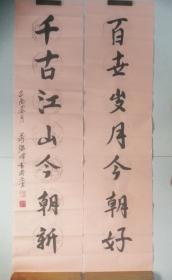 百世岁月今朝好
千古江山今朝新